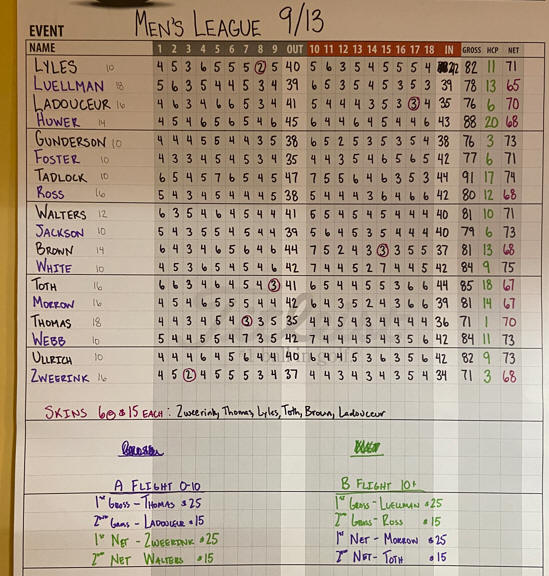 EVENT MEN'S LEAGUE 9/13
NAME 1 2 3 4 5 6 7 8 9 OUT 10 11 12 13 14 15 16 17 18 IN GROSS HCP NET
LYLES 10 4 5 3 6 5 5 5 2 5 40 5 6 3 5 4 5 5 5 4 42 82 11 71
LUELLMAN 18 5 6 3 5 4 4 5 3 4 39 6 5 3 5 4 5 3 5 3 39 78 13 65
LADOUCEUR 16 4 6 3 4 6 6 5 3 4 41 5 4 4 4 3 5 3 3 4 35 76 6 70
HUWER 14 45 43 88 20 68
GUNDERSON 10 4 4 4 5 5 4 4 3 5 38 6 5 2 5 3 5 3 5 4 38 76 3 73
FOSTER 10 4 3 3 4 5 4 5 3 4 35 4 4 3 5 4 6 5 6 5 42 77 6 71
TADLOCK 10 6 5 4 5 7 6 5 4 5 47 7 5 5 6 4 6 3 5 3 44 91 17 74
ROSS 16 5 4 3 4 5 4 4 4 5 38 5 4 4 4 3 6 4 6 6 42 80 12 68
WALTERS 12 6 3 5 4 6 4 5 4 4 41 5 5 4 5 4 5 4 4 4 40 81 10 71
JACKSON 10 5 4 3 5 5 4 5 4 4 39 5 6 4 5 3 5 4 4 4 40 79 6 73
BROWN 14 6 4 3 4 6 5 6 4 6 44 7 5 2 4 3 3 3 5 5 37 81 13 68
WHITE 10 4 5 3 6 5 4 5 4 6 42 7 4 4 5 2 7 4 4 5 42 84 9 75
TOTH 16 6 6 3 4 6 4 5 4 3 41 6 5 4 4 5 5 3 6 6 44 85 18 67
MORROW 16 4 5 4 6 5 5 5 4 4 42 6 4 3 5 2 4 3 6 6 39 81 14 67
THOMAS 18 4 4 3 4 5 4 3 3 5 35 4 4 4 5 4 3 4 4 4 36 71 1 70
WEBB 10 5 4 4 5 5 4 7 3 5 42 4 4 4 5 4 7 3 5 6 42 84 11 73
ULLRICH 10 4 4 4 6 4 5 4 4 40 6 4 4 5 3 6 3 5 6 42 82 9 73
ZWEERINK 16 4 5 2 4 5 5 5 3 4 37 4 4 3 4 3 4 3 5 4 34 71 3 68
SKINS 6@$15 EACH: Zweerink, Thomas, Lyles, Toth, Brown, Ladouceur
A FLIGHT 0-10
1st GROSS - THOMAS $25
2nd GROSS - LADOUCEUR $15
1st NET - ZWEERINK $25
2nd NET WALTERS $15
B FLIGHT 10+
1st GROSS - LUELLMAN $25
2nd GROSS - ROSS $15
1st NET - MORROW $25
2nd NET - TOTH $15